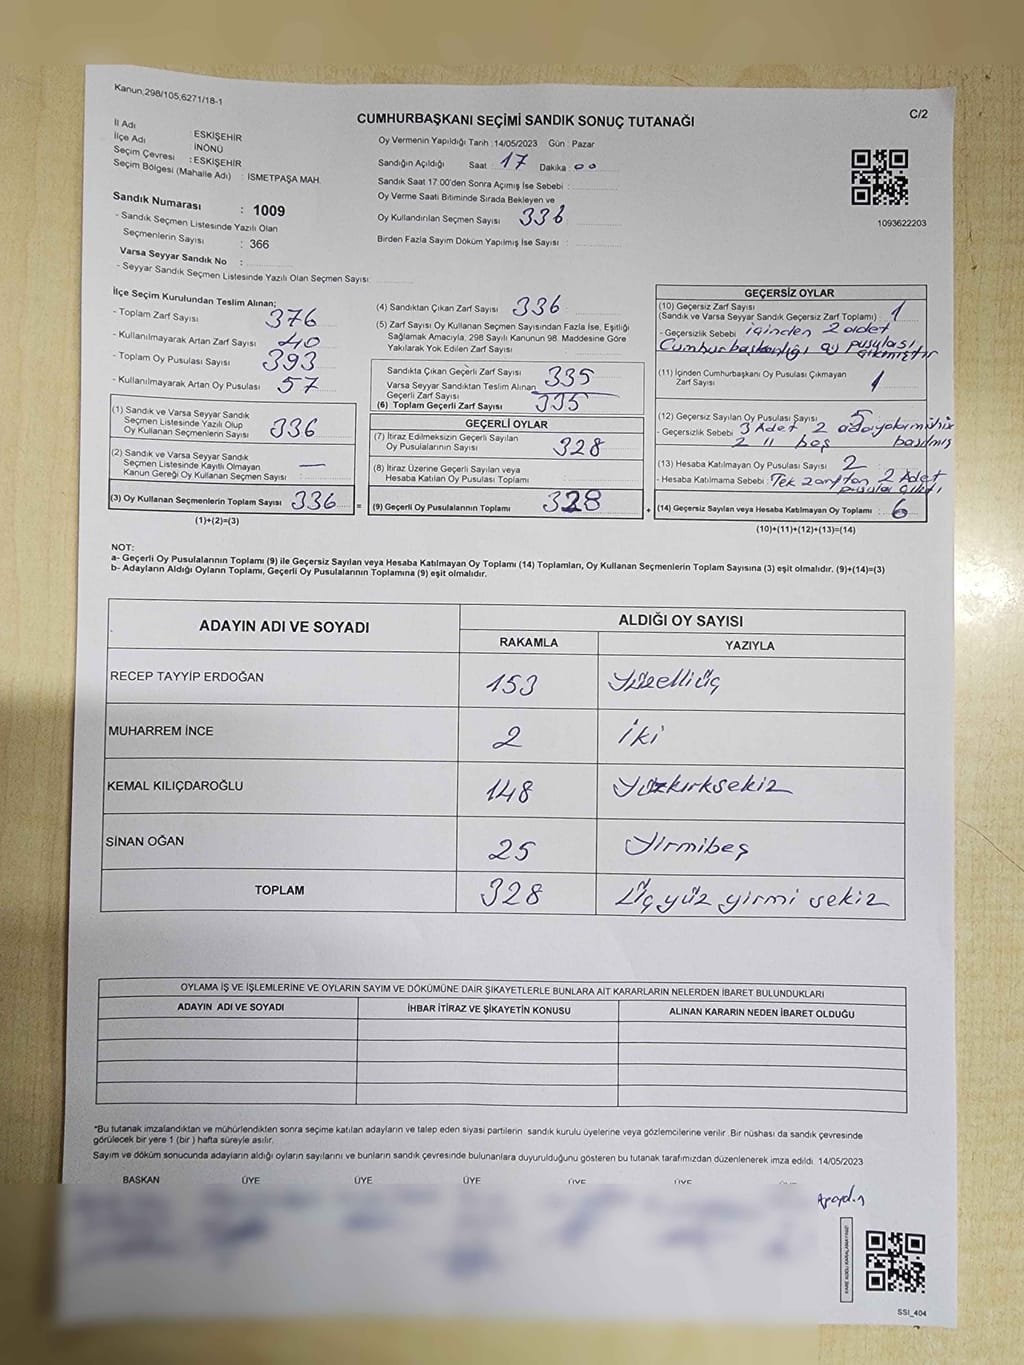 Kanun,298/105,6271/18-1
C/2
CUMHURBAŞKANI SEÇİMİ SANDIK SONUÇ TUTANAĞI
İl Adı : ESKİŞEHİR
İlçe Adı : İNÖNÜ
Seçim Çevresi : ESKİŞEHİR
Seçim Bölgesi (Mahalle Adı) : İSMETPAŞA MAH.
Oy Vermenin Yapıldığı Tarih :14/05/2023 Gün : Pazar
Sandığın Açıldığı Saat : 17 Dakika : 00
Sandık Saat 17:00'den Sonra Açımış İse Sebebi :
Oy Verme Saati Bitiminde Sırada Bekleyen ve
Oy Kullandırılan Seçmen Sayısı 336
Birden Fazla Sayım Döküm Yapılmış İse Sayısı :
1093622203
Sandık Numarası : 1009
- Sandık Seçmen Listesinde Yazılı Olan
Seçmenlerin Sayısı : 366
Varsa Seyyar Sandık No :
- Seyyar Sandık Seçmen Listesinde Yazılı Olan Seçmen Sayısı:
İlçe Seçim Kurulundan Teslim Alınan;
- Toplam Zarf Sayısı 376
- Kullanılmayarak Artan Zarf Sayısı : 40
- Toplam Oy Pusulası Sayısı 393
- Kullanılmayarak Artan Oy Pusulası : 57
(1) Sandık ve Varsa Seyyar Sandık
Seçmen Listesinde Yazılı Olup
Oy Kullanan Seçmenlerin Sayısı : 336
(2) Sandık ve Varsa Seyyar Sandık
Seçmen Listesinde Kayıtlı Olmayan
Kanun Gereği Oy Kullanan Seçmen Sayısı : —
(3) Oy Kullanan Seçmenlerin Toplam Sayısı : 336
(1)+(2)=(3)
(4) Sandıktan Çıkan Zarf Sayısı : 336
(5) Zarf Sayısı Oy Kullanan Seçmen Sayısından Fazla İse, Eşitliği
Sağlamak Amacıyla, 298 Sayılı Kanunun 98. Maddesine Göre
Yakılarak Yok Edilen Zarf Sayısı :
Sandıkta Çıkan Geçerli Zarf Sayısı : 335
Varsa Seyyar Sandıktan Teslim Alınan
Geçerli Zarf Sayısı :
(6) Toplam Geçerli Zarf Sayısı : 335
GEÇERLİ OYLAR
(7) İtiraz Edilmeksizin Geçerli Sayılan
Oy Pusulalarının Sayısı : 328
(8) İtiraz Üzerine Geçerli Sayılan veya
Hesaba Katılan Oy Pusulası Toplamı :
= (9) Geçerli Oy Pusulalarının Toplamı : 328
GEÇERSİZ OYLAR
(10) Geçersiz Zarf Sayısı
(Sandık ve Varsa Seyyar Sandık Geçersiz Zarf Toplamı) : 1
- Geçersizlik Sebebi : içinden 2 adet
Cumhurbaşkanlığı oy pusulası
çıkmıştır
(11) İçinden Cumhurbaşkanı Oy Pusulası Çıkmayan
Zarf Sayısı 1
(12) Geçersiz Sayılan Oy Pusulası Sayısı : 5
- Geçersizlik Sebebi : 3 Adet 2 adaya mühür
2 " boş basılmış
(13) Hesaba Katılmayan Oy Pusulası Sayısı : 2
- Hesaba Katılmama Sebebi : Tek zarftan 2 Adet
pusula çıktı
+ (14) Geçersiz Sayılan veya Hesaba Katılmayan Oy Toplamı : 6
(10)+(11)+(12)+(13)=(14)
NOT:
a- Geçerli Oy Pusulalarının Toplamı (9) ile Geçersiz Sayılan veya Hesaba Katılmayan Oy Toplamı (14) Toplamları, Oy Kullanan Seçmenlerin Toplam Sayısına (3) eşit olmalıdır. (9)+(14)=(3)
b- Adayların Aldığı Oyların Toplamı, Geçerli Oy Pusulalarının Toplamına (9) eşit olmalıdır.
ADAYIN ADI VE SOYADI ALDIĞI OY SAYISI
RAKAMLA YAZIYLA
RECEP TAYYİP ERDOĞAN 153 Yüzelliüç
MUHARREM İNCE 2 İki
KEMAL KILIÇDAROĞLU 148 Yüzkırksekiz
SİNAN OĞAN 25 Yirmibeş
TOPLAM 328 Üçyüz yirmi sekiz
OYLAMA İŞ VE İŞLEMLERİNE VE OYLARIN SAYIM VE DÖKÜMÜNE DAİR ŞİKAYETLERLE BUNLARA AİT KARARLARIN NELERDEN İBARET BULUNDUKLARI
ADAYIN ADI VE SOYADI İHBAR İTİRAZ VE ŞİKAYETİN KONUSU ALINAN KARARIN NEDEN İBARET OLDUĞU
*Bu tutanak imzalandıktan ve mühürlendikten sonra seçime katılan adayların ve talep eden siyasi partilerin sandık kurulu üyelerine veya gözlemcilerine verilir .Bir nüshası da sandık çevresinde
görülecek bir yere 1 (bir ) hafta süreyle asılır.
Sayım ve döküm sonucunda adayların aldığı oyların sayılarını ve bunların sandık çevresinde bulunanlara duyurulduğunu gösteren bu tutanak tarafımızdan düzenlenerek imza edildi 14/05/2023
BAŞKAN ÜYE ÜYE ÜYE ÜYE ÜYE
SSI_404